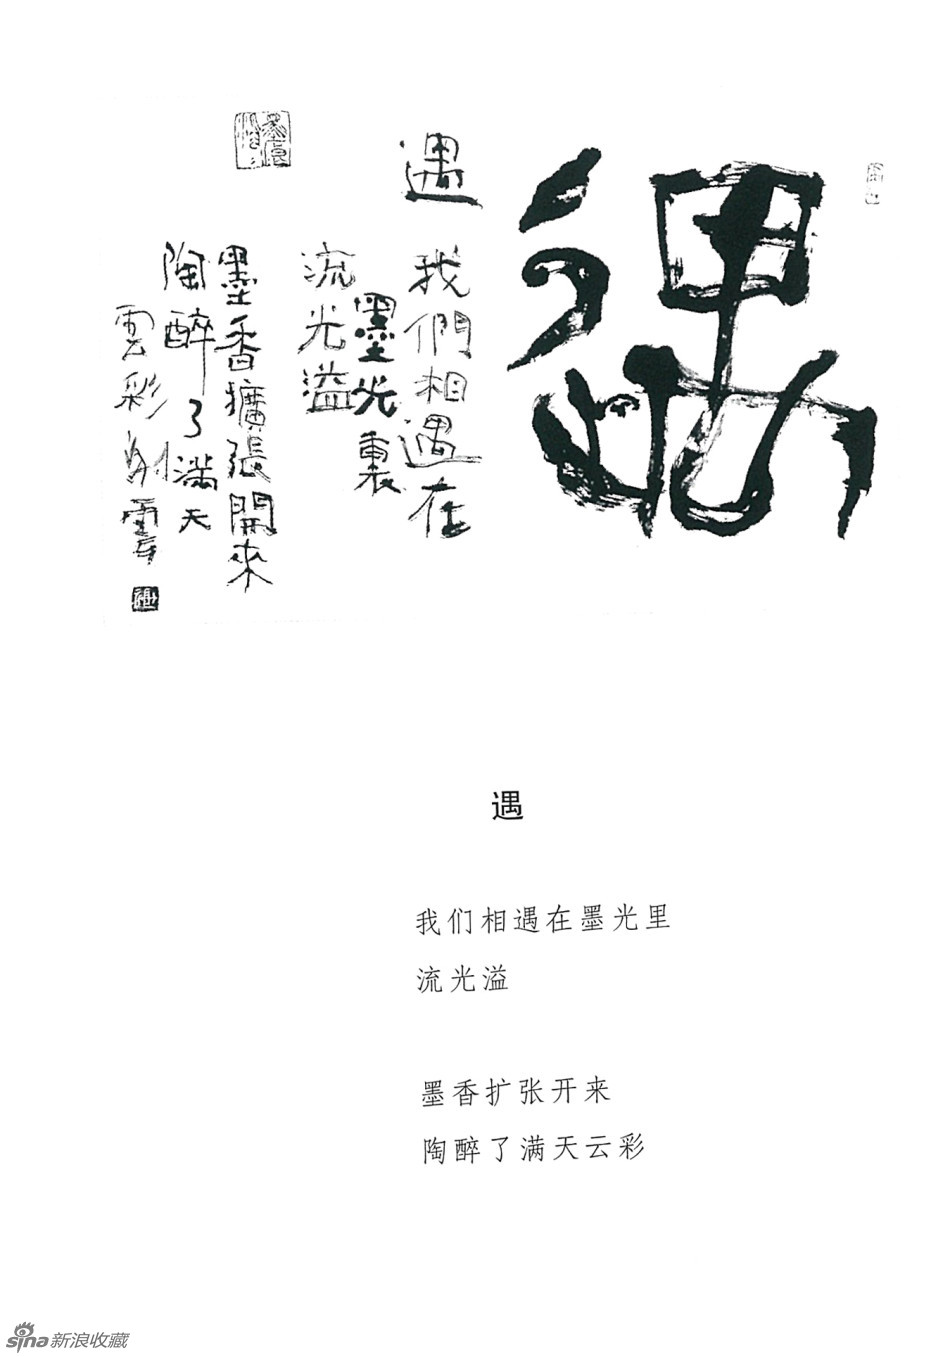 遇
遇
我們相遇在
墨光裏
流光溢
墨香擴張開來
陶醉了滿天
雲彩
遇
我们相遇在墨光里
流光溢
墨香扩张开来
陶醉了满天云彩
sina新浪收藏